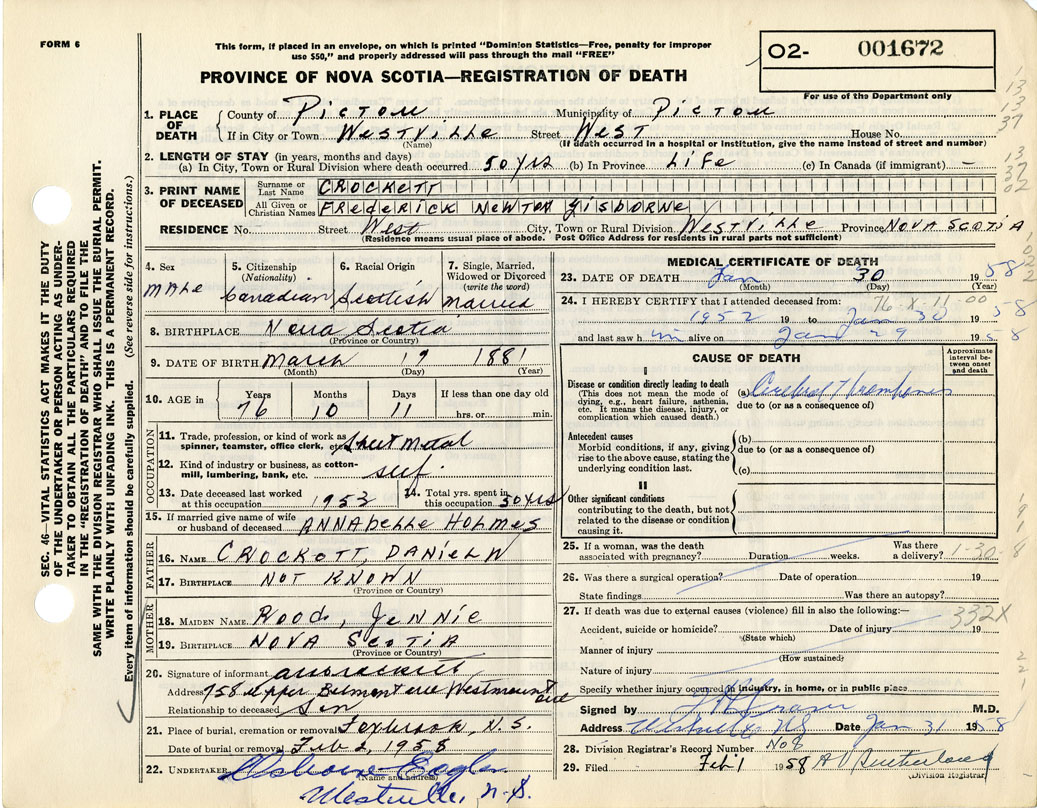 FORM 6
This form, if placed in an envelope, on which is printed "Dominion Statistics—Free, penalty for improper
use $50," and properly addressed will pass through the mail "FREE"
O2- 001672
For use of the Department only
PROVINCE OF NOVA SCOTIA—REGISTRATION OF DEATH
SEC. 46—VITAL STATISTICS ACT MAKES IT THE DUTY
OF THE UNDERTAKER OR PERSON ACTING AS UNDER-
TAKER TO OBTAIN ALL THE PARTICULARS REQUIRED
IN THE "REGISTRATION OF DEATH" AND TO FILE THE
SAME WITH THE DIVISION REGISTRAR WHO SHALL ISSUE THE BURIAL PERMIT.
WRITE PLAINLY WITH UNFADING INK. THIS IS A PERMANENT RECORD.
Every item of information should be carefully supplied. (See reverse side for instructions.)
1. PLACE OF DEATH
County of Pictou Municipality of Pictou
If in City or Town Westville Street West House No.
(Name) (If death occurred in a hospital or institution, give the name instead of street and number)
2. LENGTH OF STAY (in years, months and days)
(a) In City, Town or Rural Division where death occurred 50 yrs (b) In Province Life (c) In Canada (if immigrant) —
3. PRINT NAME OF DECEASED
Surname or Last Name CROCKETT
All Given or Christian Names FREDERICK NEWTON GISBORNE
RESIDENCE No. Street West City, Town or Rural Division Westville Province NOVA SCOTIA
(Residence means usual place of abode. Post Office Address for residents in rural parts not sufficient)
4. Sex MALE
5. Citizenship (Nationality) Canadian
6. Racial Origin Scottish
7. Single, Married, Widowed or Divorced (write the word) Married
8. BIRTHPLACE Nova Scotia
(Province or Country)
9. DATE OF BIRTH March 19 1881
(Month) (Day) (Year)
10. AGE in Years 76 Months 10 Days 11 If less than one day old hrs. or min.
OCCUPATION
11. Trade, profession, or kind of work as spinner, teamster, office clerk, etc. Sheet Metal
12. Kind of industry or business, as cotton-mill, lumbering, bank, etc. self
13. Date deceased last worked at this occupation 1953
14. Total yrs. spent in this occupation 50 yrs
15. If married give name of wife or husband of deceased ANNAbelle Holmes
FATHER
16. NAME CROCKETT, DANIEL W
17. BIRTHPLACE NOT KNOWN
(Province or Country)
MOTHER
18. MAIDEN NAME Rood, Jennie
19. BIRTHPLACE NOVA SCOTIA
(Province or Country)
20. Signature of informant
Address 758 Upper Belmont ave Westmount
Relationship to deceased Son
21. Place of burial, cremation or removal Foxbrook, N.S.
Date of burial or removal Feb 2, 1958
22. UNDERTAKER
(Name and address)
Westville, N.S.
MEDICAL CERTIFICATE OF DEATH
23. DATE OF DEATH Jan 30 1958
(Month) (Day) (Year)
76-X-11-00
24. I HEREBY CERTIFY that I attended deceased from:
1952 19 to Jan 30 1958
and last saw him alive on Jan 29 1958
CAUSE OF DEATH
Approximate interval between onset and death
I
Disease or condition directly leading to death
(This does not mean the mode of dying, e.g., heart failure, asthenia, etc. It means the disease, injury, or complication which caused death.)
(a) Cerebral Thrombosis
due to (or as a consequence of)
Antecedent causes
Morbid conditions, if any, giving rise to the above cause, stating the underlying condition last.
(b)
due to (or as a consequence of)
(c)
II
Other significant conditions
contributing to the death, but not related to the disease or condition causing it.
25. If a woman, was the death associated with pregnancy? Duration weeks. Was there a delivery? 1-30-8
26. Was there a surgical operation? Date of operation 19
State findings Was there an autopsy?
27. If death was due to external causes (violence) fill in also the following:—
332X
Accident, suicide or homicide? Date of injury 19
(State which)
Manner of injury
(How sustained)
Nature of injury
Specify whether injury occurred in industry, in home, or in public place
Signed by M.D.
Address Westville NS Date Jan 31 1958
28. Division Registrar's Record Number No 8
29. Filed Feb 1 1958 A V Sutherland
(Division Registrar)